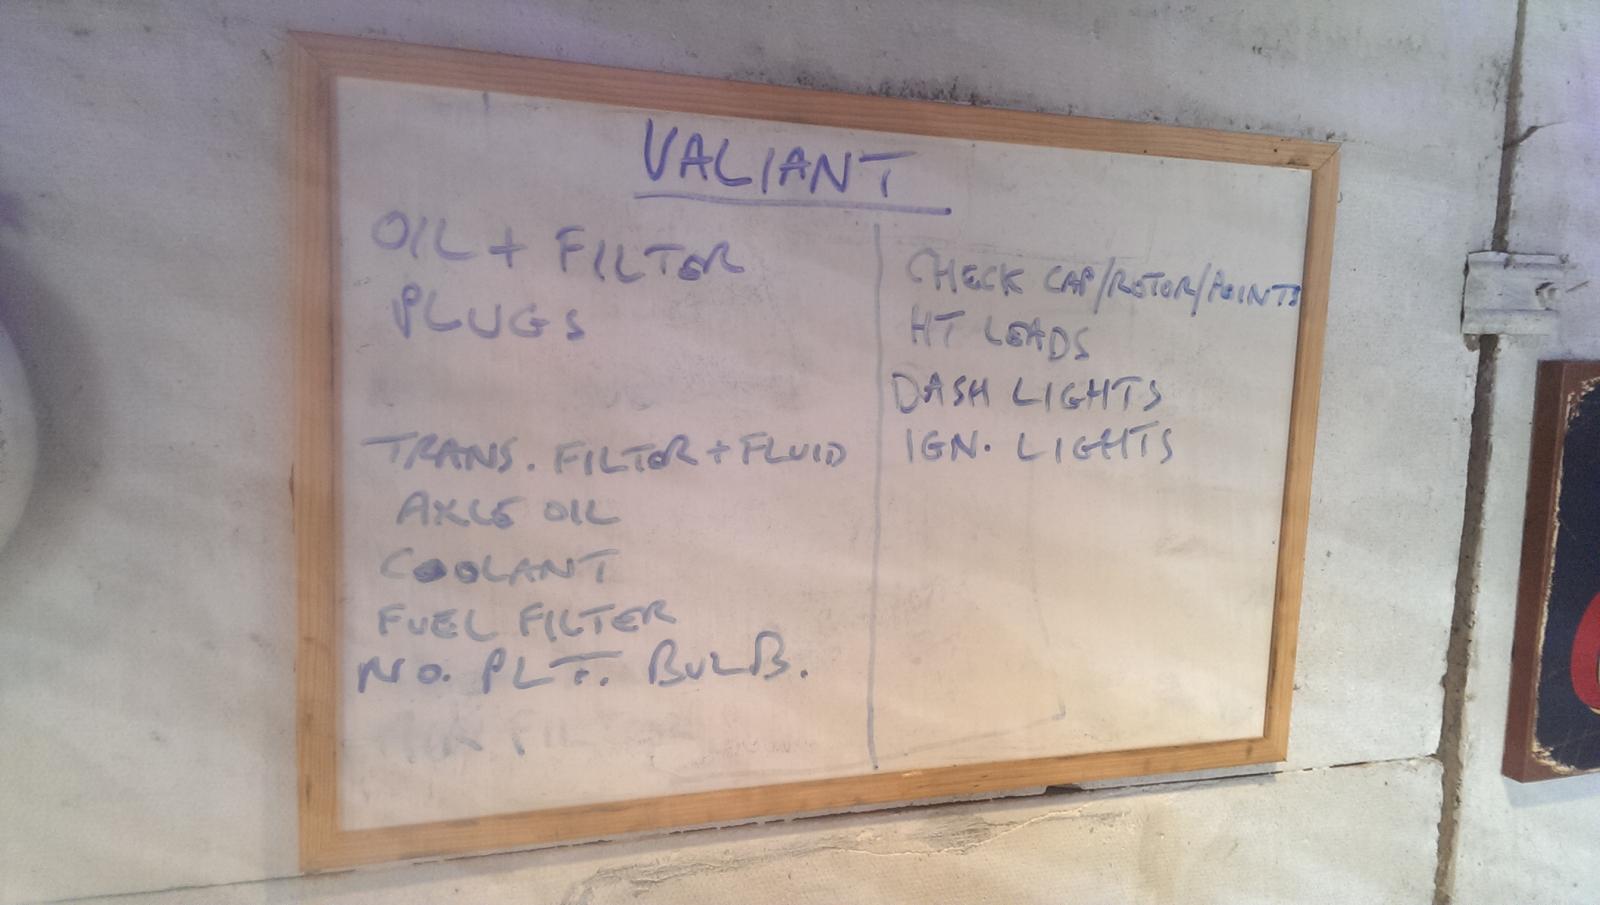 VALIANT
OIL + FILTER
PLUGS
TRANS. FILTER + FLUID
AXLE OIL
COOLANT
FUEL FILTER
NO. PLT. BULB.
CHECK CAP/ROTOR/POINTS
HT LEADS
DASH LIGHTS
IGN. LIGHTS